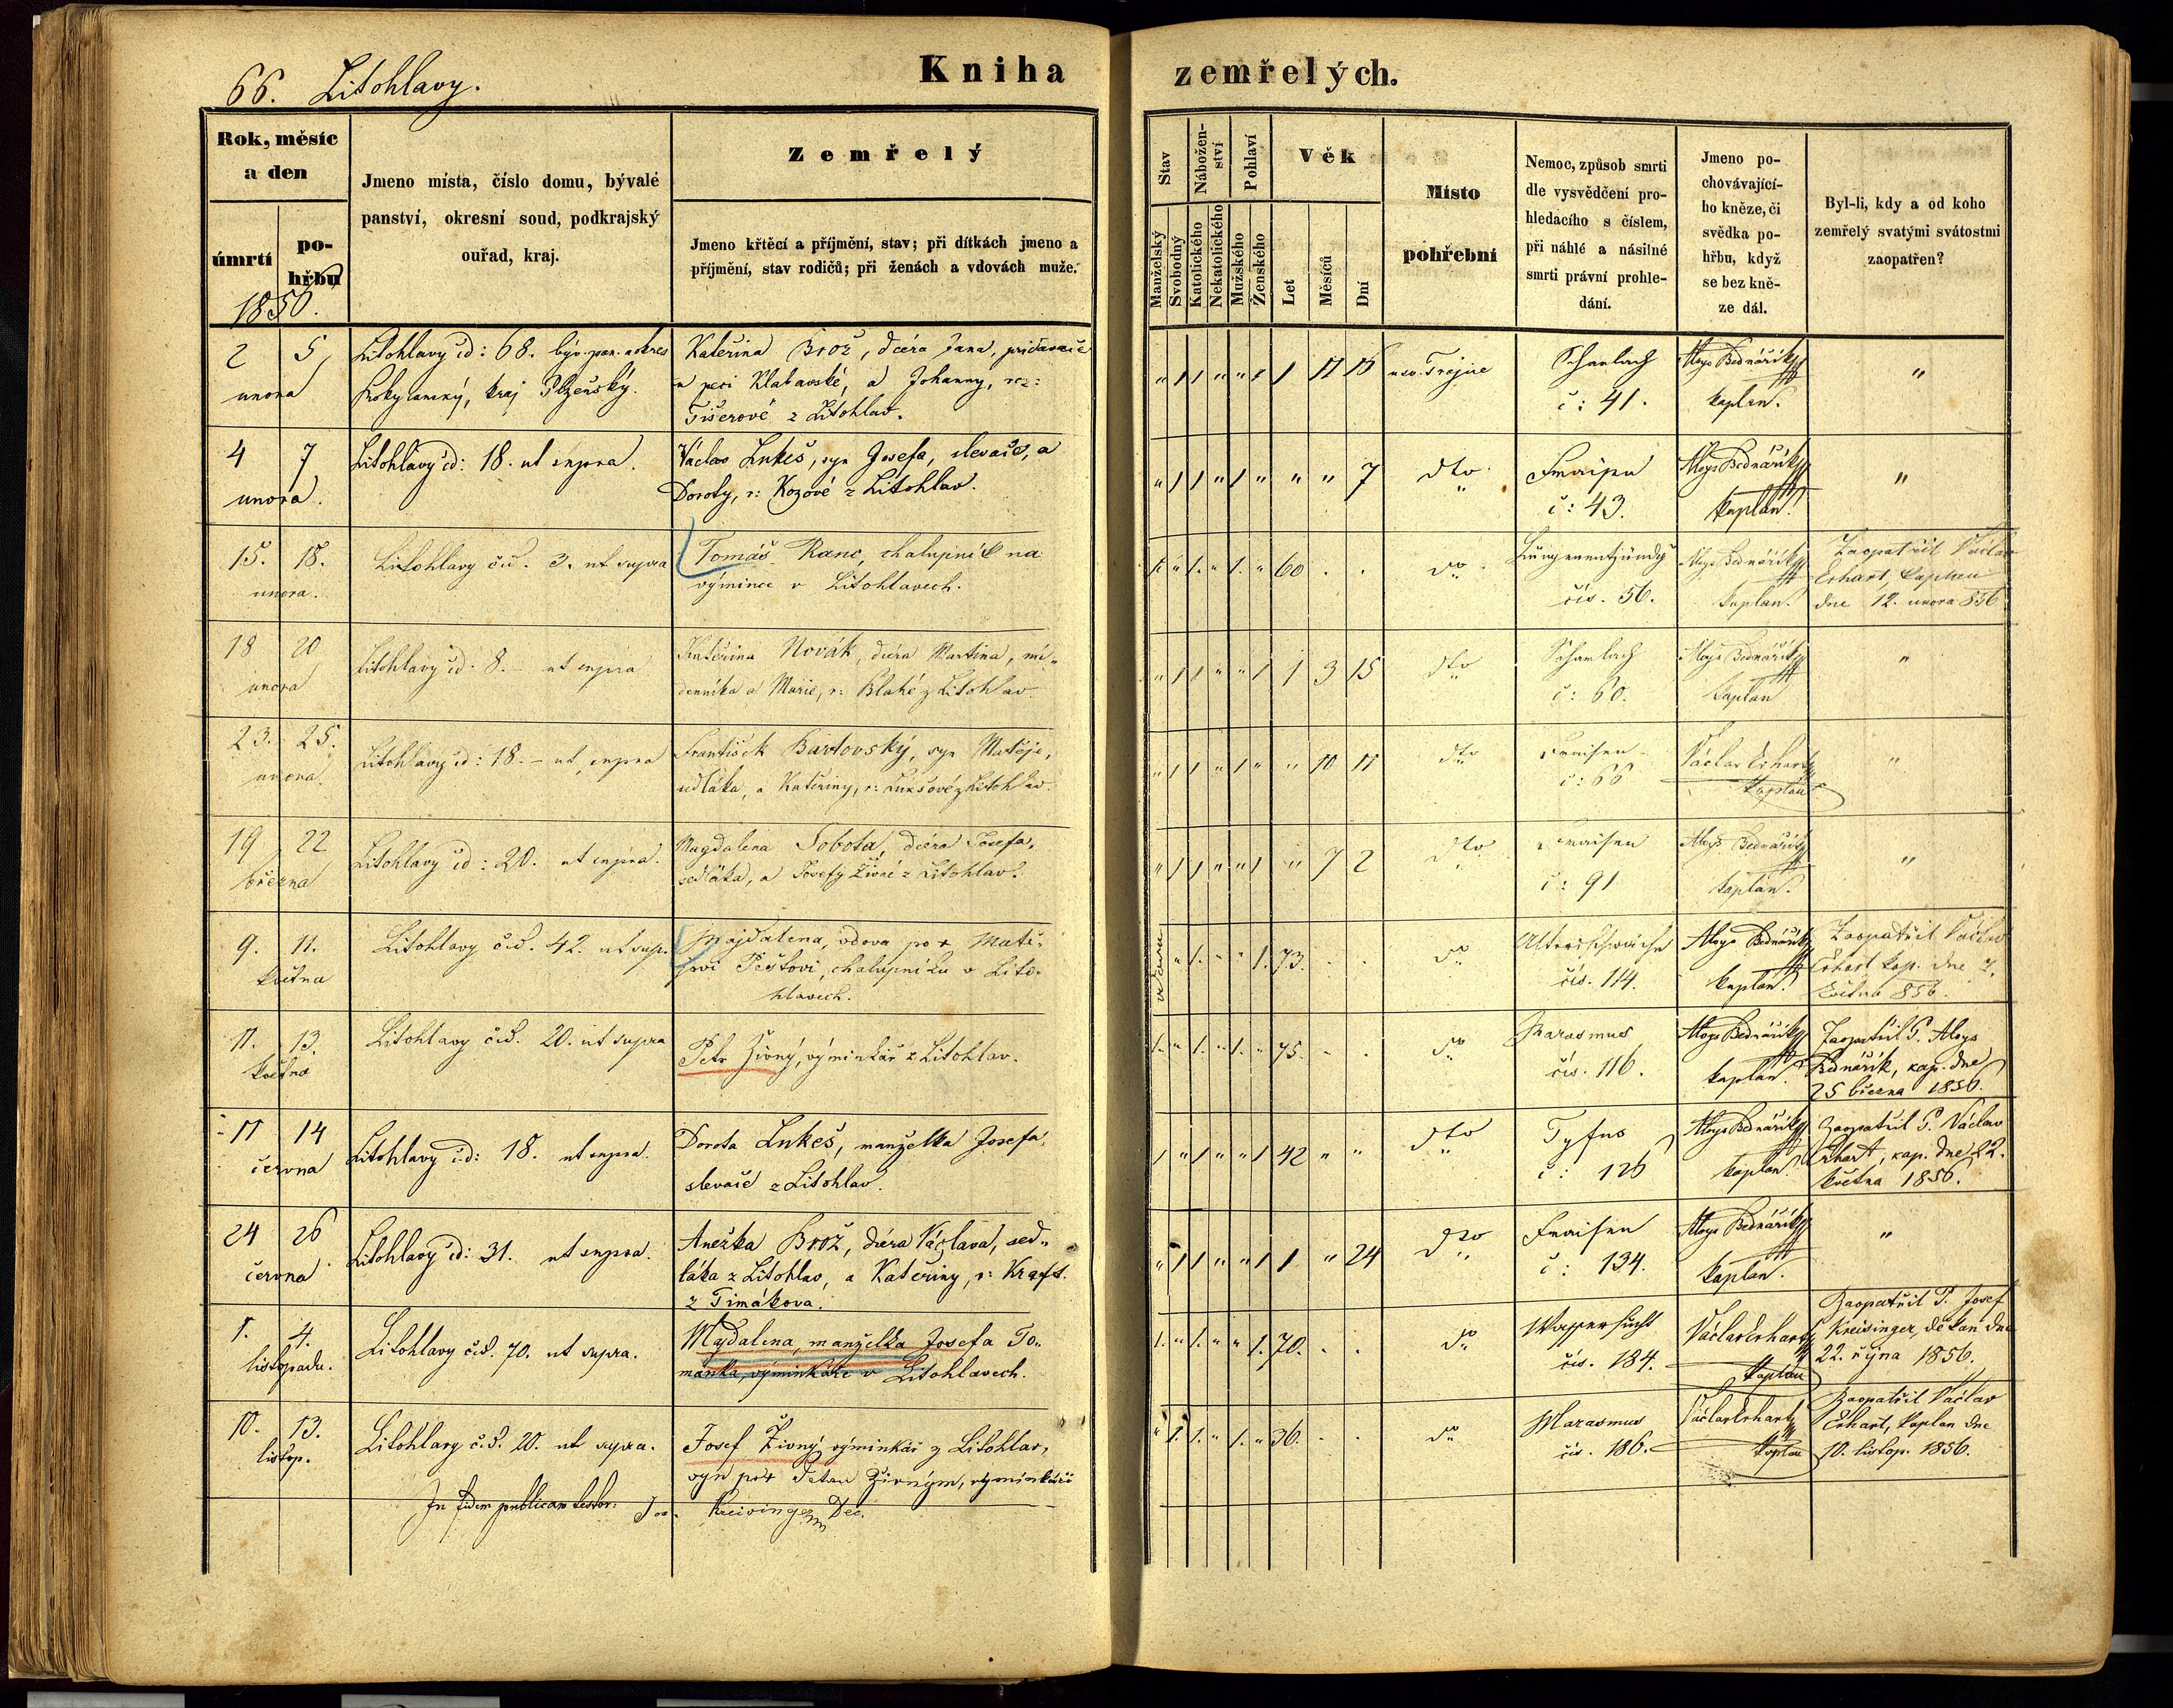 66. Litohlavy.
Kniha zemřelých.
Rok, měsíc
a den
úmrtí
po-
hřbu
1856.
Jmeno místa, číslo domu, bývalé
panství, okresní soud, podkrajský
ouřad, kraj.
Zemřelý
Jmeno křtěcí a příjmění, stav; při dítkách jmeno a
příjmění, stav rodičů; při ženách a vdovách muže.
Stav
Manželský
Svobodný
Nábožen-
ství
Katolického
Nekatolického
Pohlaví
Mužského
Ženského
Věk
Let
Měsíců
Dní
Místo
pohřební
Nemoc, způsob smrti
dle vysvědčení pro-
hledacího s číslem,
při náhlé a násilné
smrti právní prohle-
dání.
Jmeno po-
chovávající-
ho kněze, či
svědka po-
hřbu, když
se bez kně-
ze dál.
Byl-li, kdy a od koho
zemřelý svatými svátostmi
zaopatřen?
2 5
unora
Litohlavy čd: 68. býv. pan. a okres
Rokycanský, kraj Plzeňský.
Kateřina Brož, dcera Jana, přidavače
u peci Klabavské, a Johanny, roz:
Fišerové z Litohlav.
" 1 1 " " 1 1 11 15 u sv. Trojice
Scharlach
č: 41.
Aloys Bednářík
kaplan.
"
4 7
unora.
Litohlavy čd: 18. ut supra.
Václav Lukeš, syn Josefa, slevače, a
Doroty, r: Kozové z Litohlav.
" 1 1 " 1 " " " 7 dto
Fraisen
č: 43.
Aloys Bednářík
kaplan.
"
15. 18.
unora.
Litohlavy čd. 3. ut supra
Tomáš Ranc, chalupník na
výmince v Litohlavech.
1. " 1. " 1. " 60 . . do
čís. 56.
Aloys Bednářík
kaplan.
Zaopatřil Václav
Erhart, kaplan
dne 12. unora 856
18 20
unora
Litohlavy čd: 8. – ut supra
Kateřina Novák, dcera Martina, ná-
denníka a Marie, r: Blahé z Litohlav
" 1 1 " " 1 1 3 15 dto
Scharlach
č: 60.
Aloys Bednářík
kaplan
"
23. 25.
unora.
Litohlavy čd: 18. – ut supra
František Bartovský, syn Matěje,
sedláka, a Kateřiny, r: Lukšové z Litohlav.
" 1 1 " 1 " " 10 11 dto
Fraisen
č: 66
Václav Erhart
kaplan
"
19 22
března
Litohlavy čd: 20. ut supra.
Magdalena Sobota, dcera Josefa,
sedláka, a Josefy Živné z Litohlav.
" 1 1 " " 1 " 7 2 dto
Fraisen
č: 91
Aloys Bednářík
kaplan.
"
9. 11.
května
Litohlavy čd. 42. ut sup.
Majdalena, vdova po + Matě-
jovi Peštovi, chalupníku v Lito-
hlavech.
vdova " 1. " " 1. 73. . . do
Altersschwäche
čís. 114.
Aloys Bednářík
kaplan.
Zaopatřil Václav
Erhart kap. dne 7.
května 856.
11. 13.
května
Litohlavy čd. 20. ut supra
Petr Živný, výminkář z Litohlav.
1. " 1. " 1. " 75. . . do
Marasmus
čís. 116.
Aloys Bednářík
kaplan.
Zaopatřil P. Aloys
Bednářík, kap. dne
25 března 1856.
11 14
června
Litohlavy čd: 18. ut supra.
Dorota Lukeš, manželka Josefa,
slevače z Litohlav.
1 " 1 " " 1 42 " " dto
Tyfus
č: 126
Aloys Bednářík
kaplan
Zaopatřil P. Václav
Erhart, kap. dne 22.
května 1856.
24 26
června
Litohlavy čd: 31. ut supra.
Anežka Brož, dcera Václava, sed-
láka z Litohlav, a Kateřiny, r: Kraft.
z Timákova.
" 1 1 " " 1 1 " 24 dto
Fraisen
č: 134.
Aloys Bednářík
kaplan.
"
1. 4.
listopadu.
Litohlavy čd. 70. ut supra.
Majdalena, manželka Josefa To-
mánka, výminkáře v Litohlavech.
1. " 1. " " 1. 70. . . do
Wassersucht
čís. 184.
Václav Erhart
kaplan
Zaopatřil P. Josef
Kreisinger, děkan dne
22. října 1856.
10. 13.
listop.
Litohlavy čd. 20. ut supra.
Josef Živný výminkář z Litohlav,
syn po + Petru Živným, výminkáři
" 1. 1. " 1. " 36. . . do
Marasmus
čís. 186.
Václav Erhart
kaplan
Zaopatřil Václav
Erhart, kaplan dne
10. listop. 1856.
In fidem publicam testor: Jos. Kreisinger Dec.